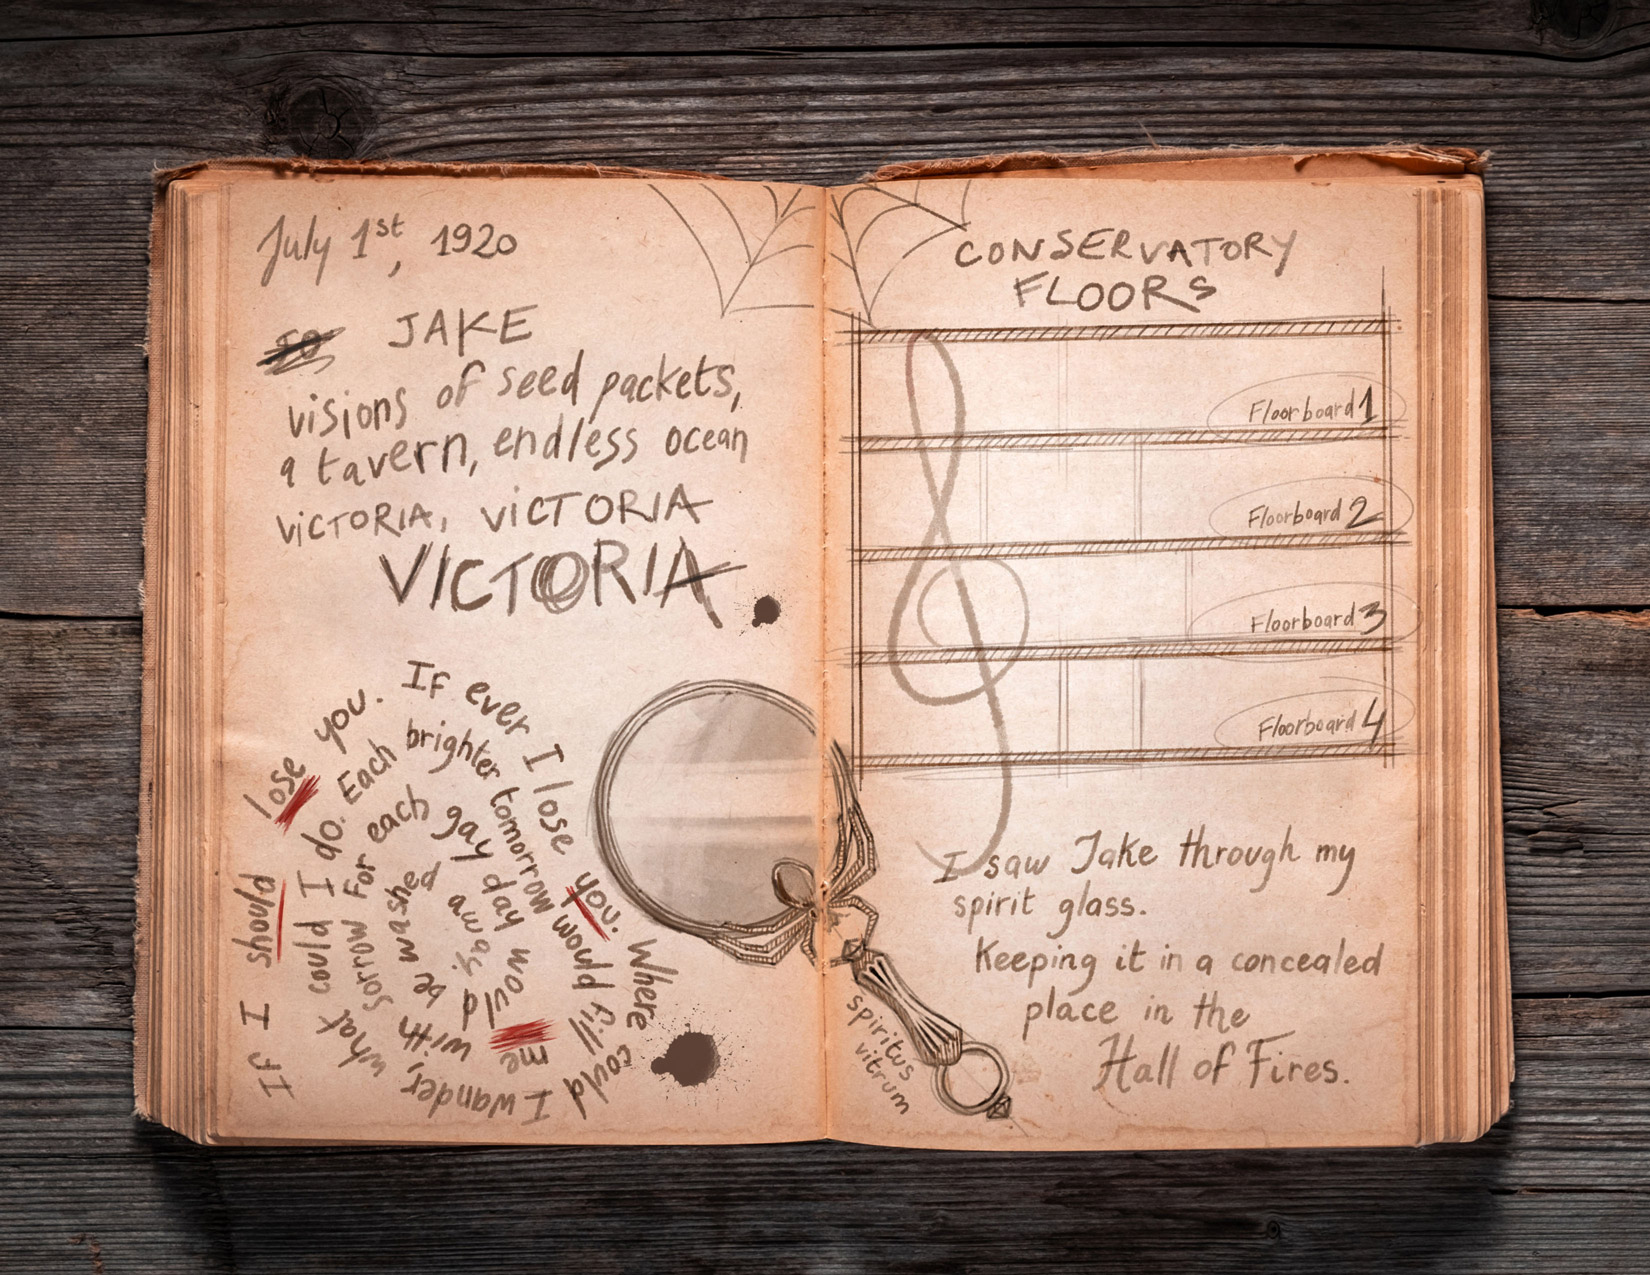 July 1st, 1920
JAKE
visions of seed packets,
a tavern, endless ocean
VICTORIA, VICTORIA
VICTORIA
If I should lose you. If ever I lose you. Where could I wander, what could I do. Each brighter tomorrow would fill me with sorrow For each gay day would be washed away.
CONSERVATORY
FLOORS
Floorboard 1
Floorboard 2
Floorboard 3
Floorboard 4
I saw Jake through my
spirit glass.
Keeping it in a concealed
place in the
Hall of Fires.
spiritus
vitrum